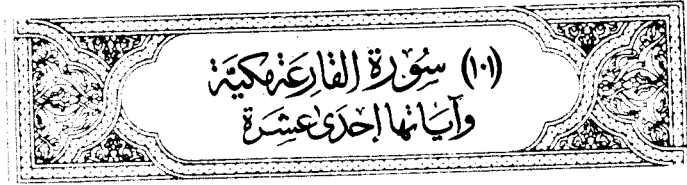 (١٠١) سُوْرَة القَارِعَة مَكيَّة
وآيَاتها إحْدَىٰ عَشِرَة